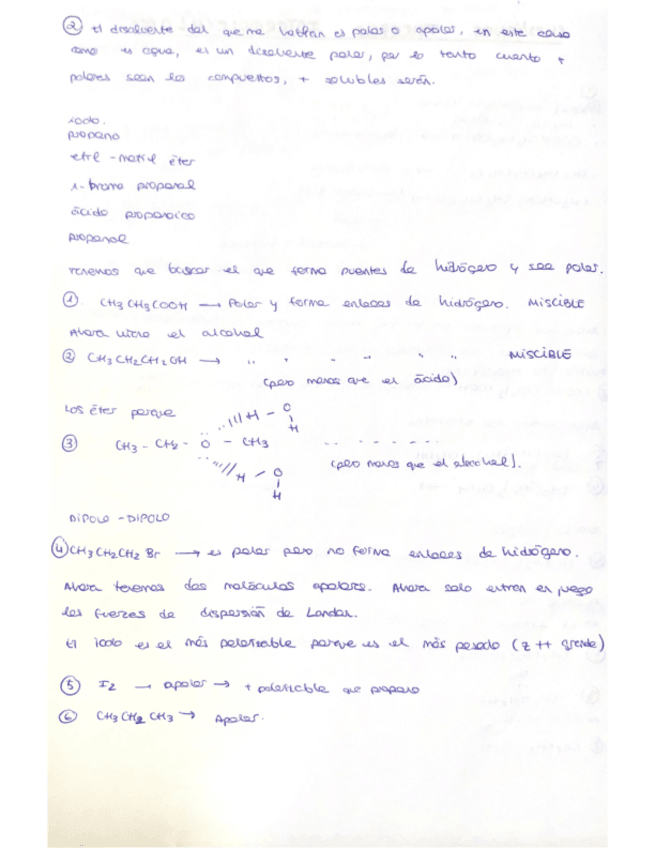 ② El disolvente del que me hablan es polar o apolar, en este caso
como es agua, es un disolvente polar, por lo tanto cuanto +
polares sean los compuestos, + solubles serán.
iodo.
propano
etil - metil éter
1- bromo propanol
ácido propanoico
propanol
Tenemos que buscar el que forma puentes de hidrógeno y sea polar.
① CH3CH2COOH → Polar y forma enlaces de hidrógeno. MISCIBLE
Ahora miro el alcohol
② CH3CH2CH2OH → '' '' '' '' '' '' MISCIBLE
(pero menos que el ácido)
Los éter porque
H - O
H
③ CH3 - CH2 - O - CH3 - - - - - - - -
(pero menos que el alcohol).
H - O
H
DIPOLO - DIPOLO
④ CH3CH2CH2 Br → es polar pero no forma enlaces de hidrógeno.
Ahora tenemos dos moléculas apolares. Ahora solo entran en juego
las fuerzas de dispersión de London.
El iodo es el más polarizable porque es el más pesado (Z ++ grande)
⑤ I2 → apolar → + polarizable que propano
⑥ CH3CH2CH3 → Apolar.